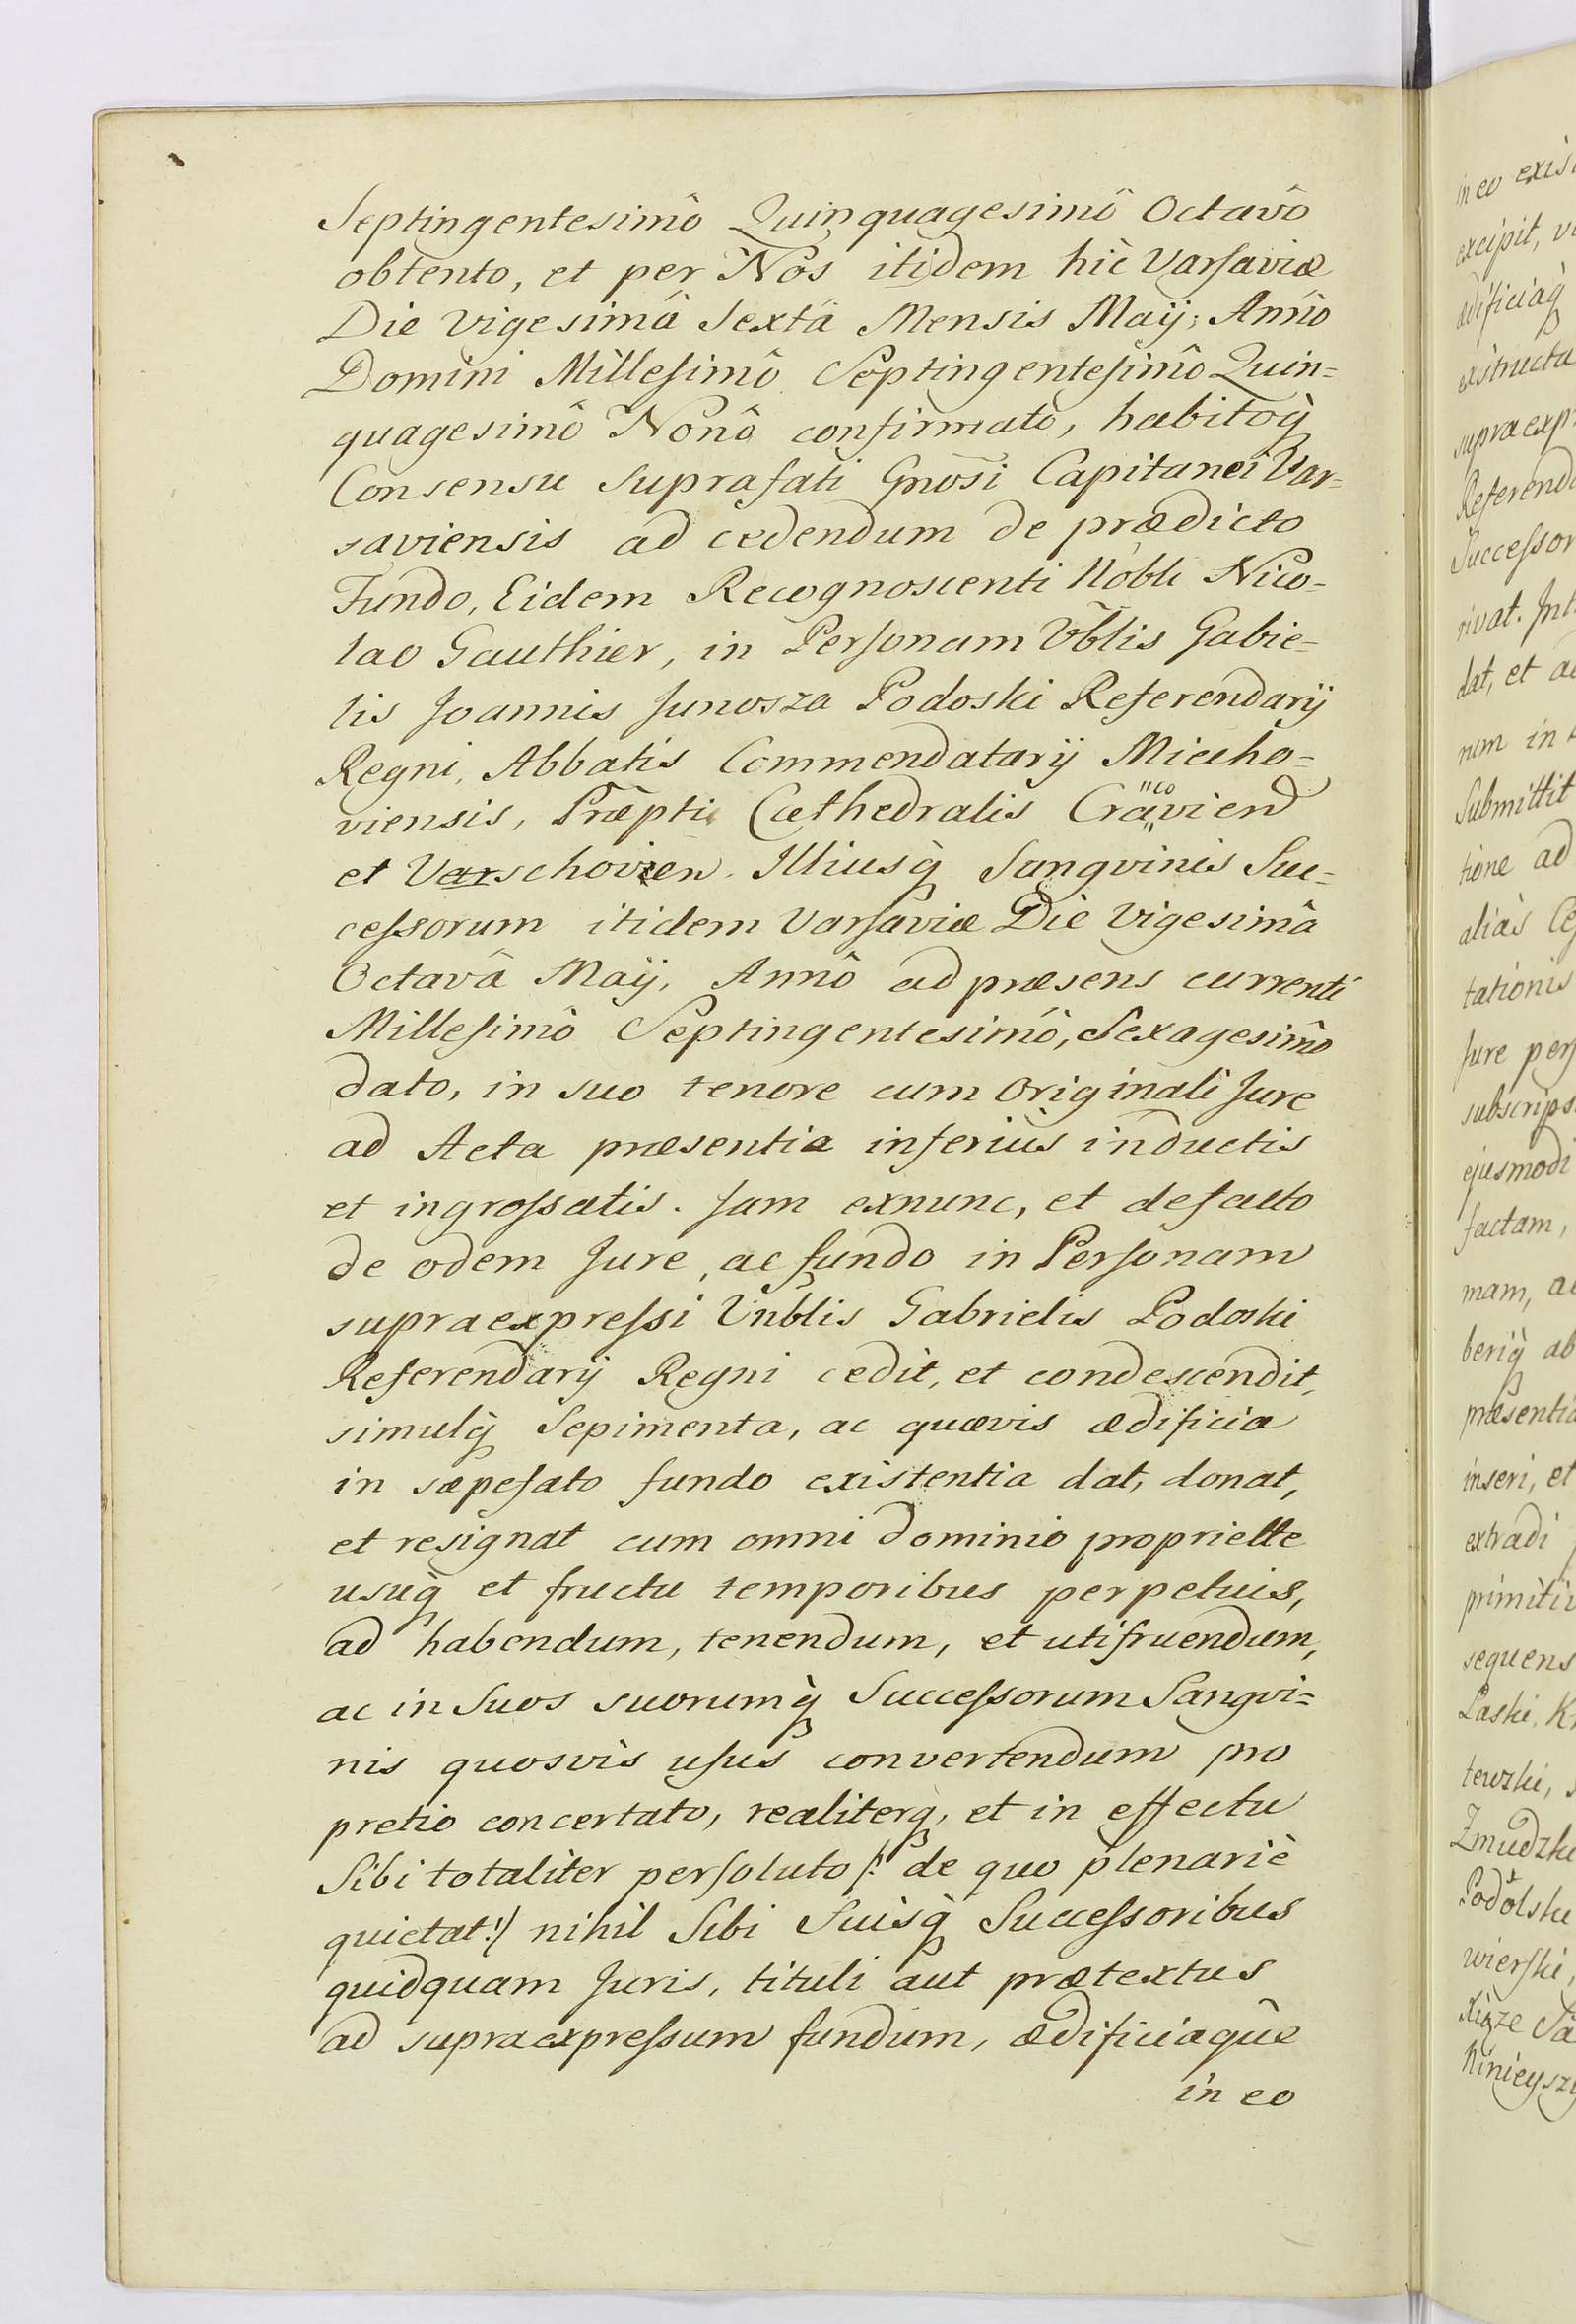 Septingentesimô Quinquagesimô Octavô
obtento, et per Nos itidem hìc Varsaviæ
Die vigesimâ Sextâ Mensis Maij, Annô
Domini Millesimô Septingentesimô Quin=
quagesimô Nonô confirmato, habitoq̀
Consensu suprafati Gnosi Capitanei Var=
saviensis ad cedendum de prædicto
Fundo, Eidem Recognoscenti Nobli Nico=
lao Gauthier, in Personam Vblis Gabie=
lis Joannis Junosza Podoski Referendarij
Regni, Abbatis Commendatarij Miecho=
viensis, Præpti Cathedralis Cracovien
et Varschovien. Illiusq̀ Sangvinis Suc=
cessorum itidem Varsaviæ Die Vigesimâ
Octavâ Maij, Annô ad præsens currenti
Millesimô Septingentesimô, Sexagesimô
dato, in suo tenore cum Originali Jure
ad Acta præsentia inferiùs inductis
et ingrossatis. Jam exnunc, et defacto
de eodem Jure, ac fundo in Personam
supraexpressi Vnblis Gabrielis Podoski
Referendarij Regni cedit, et condescendit,
simulq̀ Sepimenta, ac quævis ædificia
in sæpefato fundo existentia dat, donat,
et resignat cum omni dominio propriette
usuq̀ et fructu temporibus perpetuis,
ad habendum, tenendum, et utifruendum,
ac in Suos suorumq̀ Successorum Sangvi=
nis quosvìs usus convertendum pro
pretio concertato, realiterq, et in effectu
Sibi totaliter persoluto /: de quo plenariè
quietat :/ nihil Sibi Suisq̀ Successoribus
quidquam Juris, tituli aut prætextus
ad supraexpressum fundum, ædificiaquè
in eo
in eo exis
excipit, v
ædificiaq̀
exstructa
supraexp
Referend
Successor
rivat. Int
dat, et a
rum in
Submittit
tione ad
aliàs Ce
tationis
Jure pers
subscrips
ejusmodi
factam,
mam, a
beriq̀ ab
præsentia
inseri, et
extradi
primitiv
sequens
Laski, K
tewski,
Zmudzki
Podolski
wierski,
Xiąze Sa
Ninieysz